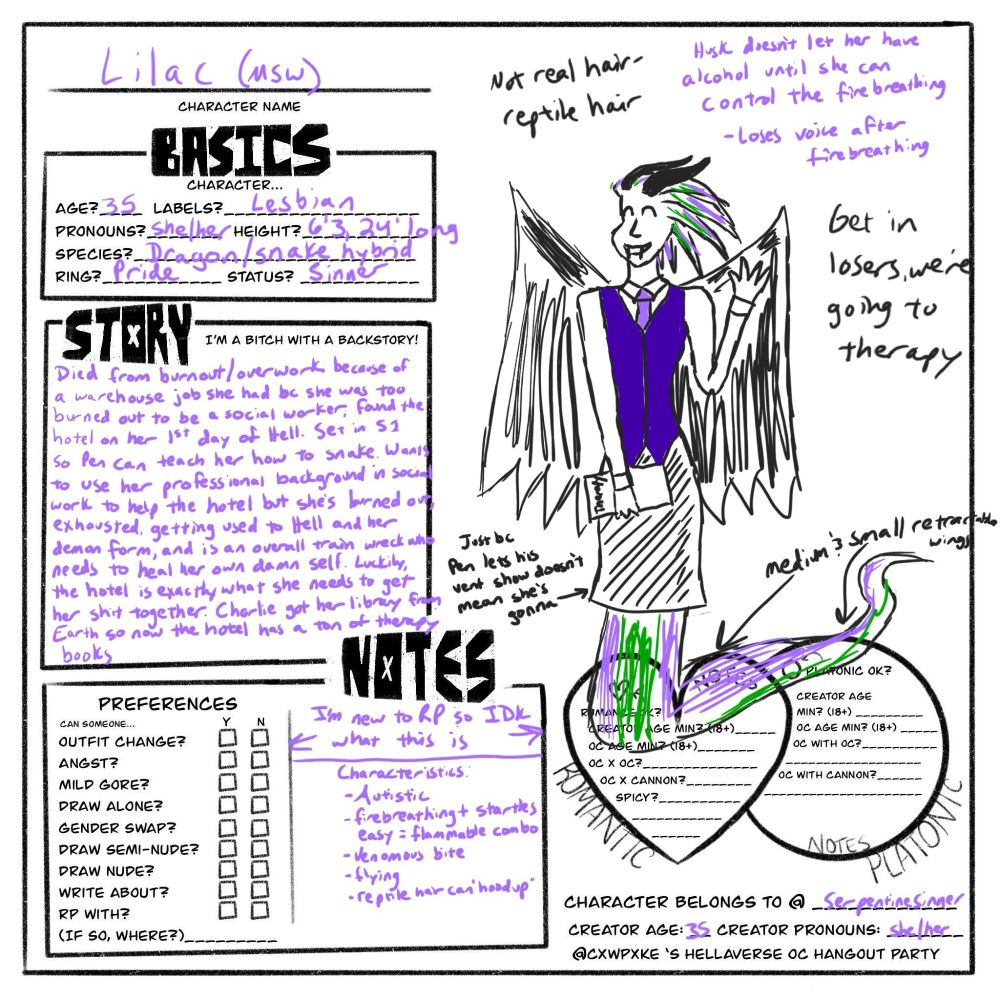 Lilac (MSW)
CHARACTER NAME
BASICS
CHARACTER...
AGE? 35 LABELS? Lesbian
PRONOUNS? she/her HEIGHT? 6'3, 24' long
SPECIES? Dragon/snake hybrid
RING? Pride STATUS? Sinner
STORY
I'M A BITCH WITH A BACKSTORY!
Died from burnout/overwork because of
a warehouse job she had bc she was too
burned out to be a social worker, found the
hotel on her 1st day of Hell. Set in S1
so Pen can teach her how to snake. Wants
to use her professional background in social
work to help the hotel but she's burned out,
exhausted, getting used to Hell and her
demon form, and is an overall train wreck who
needs to heal her own damn self. Luckily,
the hotel is exactly what she needs to get
her shit together. Charlie got her library from
Earth so now the hotel has a ton of therapy
books
Not real hair-
reptile hair
Husk doesn't let her have
alcohol until she can
control the firebreathing
-Loses voice after
firebreathing
Get in
losers, we're
going to
therapy
Just bc
Pen lets his
vent show doesn't
mean she's
gonna
medium & small retractable
wings
NOTES
PREFERENCES
CAN SOMEONE... Y N
OUTFIT CHANGE?
ANGST?
MILD GORE?
DRAW ALONE?
GENDER SWAP?
DRAW SEMI-NUDE?
DRAW NUDE?
WRITE ABOUT?
RP WITH?
(IF SO, WHERE?)
I'm new to RP so IDK
what this is
Characteristics:
-Autistic
-firebreathing + startles
easy = flammable combo
-venomous bite
-flying
-reptile hair can "hood up"
NOTES
ROMANCE OK?
CREATOR AGE MIN? (18+)
OC AGE MIN? (18+)
OC X OC?
OC X CANNON?
SPICY?
ROMANTIC
PLATONIC OK?
CREATOR AGE
MIN? (18+)
OC AGE MIN? (18+)
OC WITH OC?
OC WITH CANNON?
NOTES
PLATONIC
CHARACTER BELONGS TO @ SerpentineSinner
CREATOR AGE: 35 CREATOR PRONOUNS: she/her
@CXWPXKE 'S HELLAVERSE OC HANGOUT PARTY